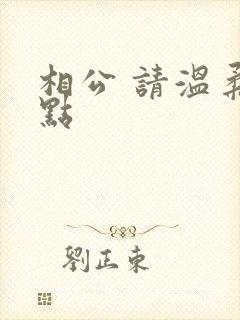 相公 請溫柔
點
劉正東